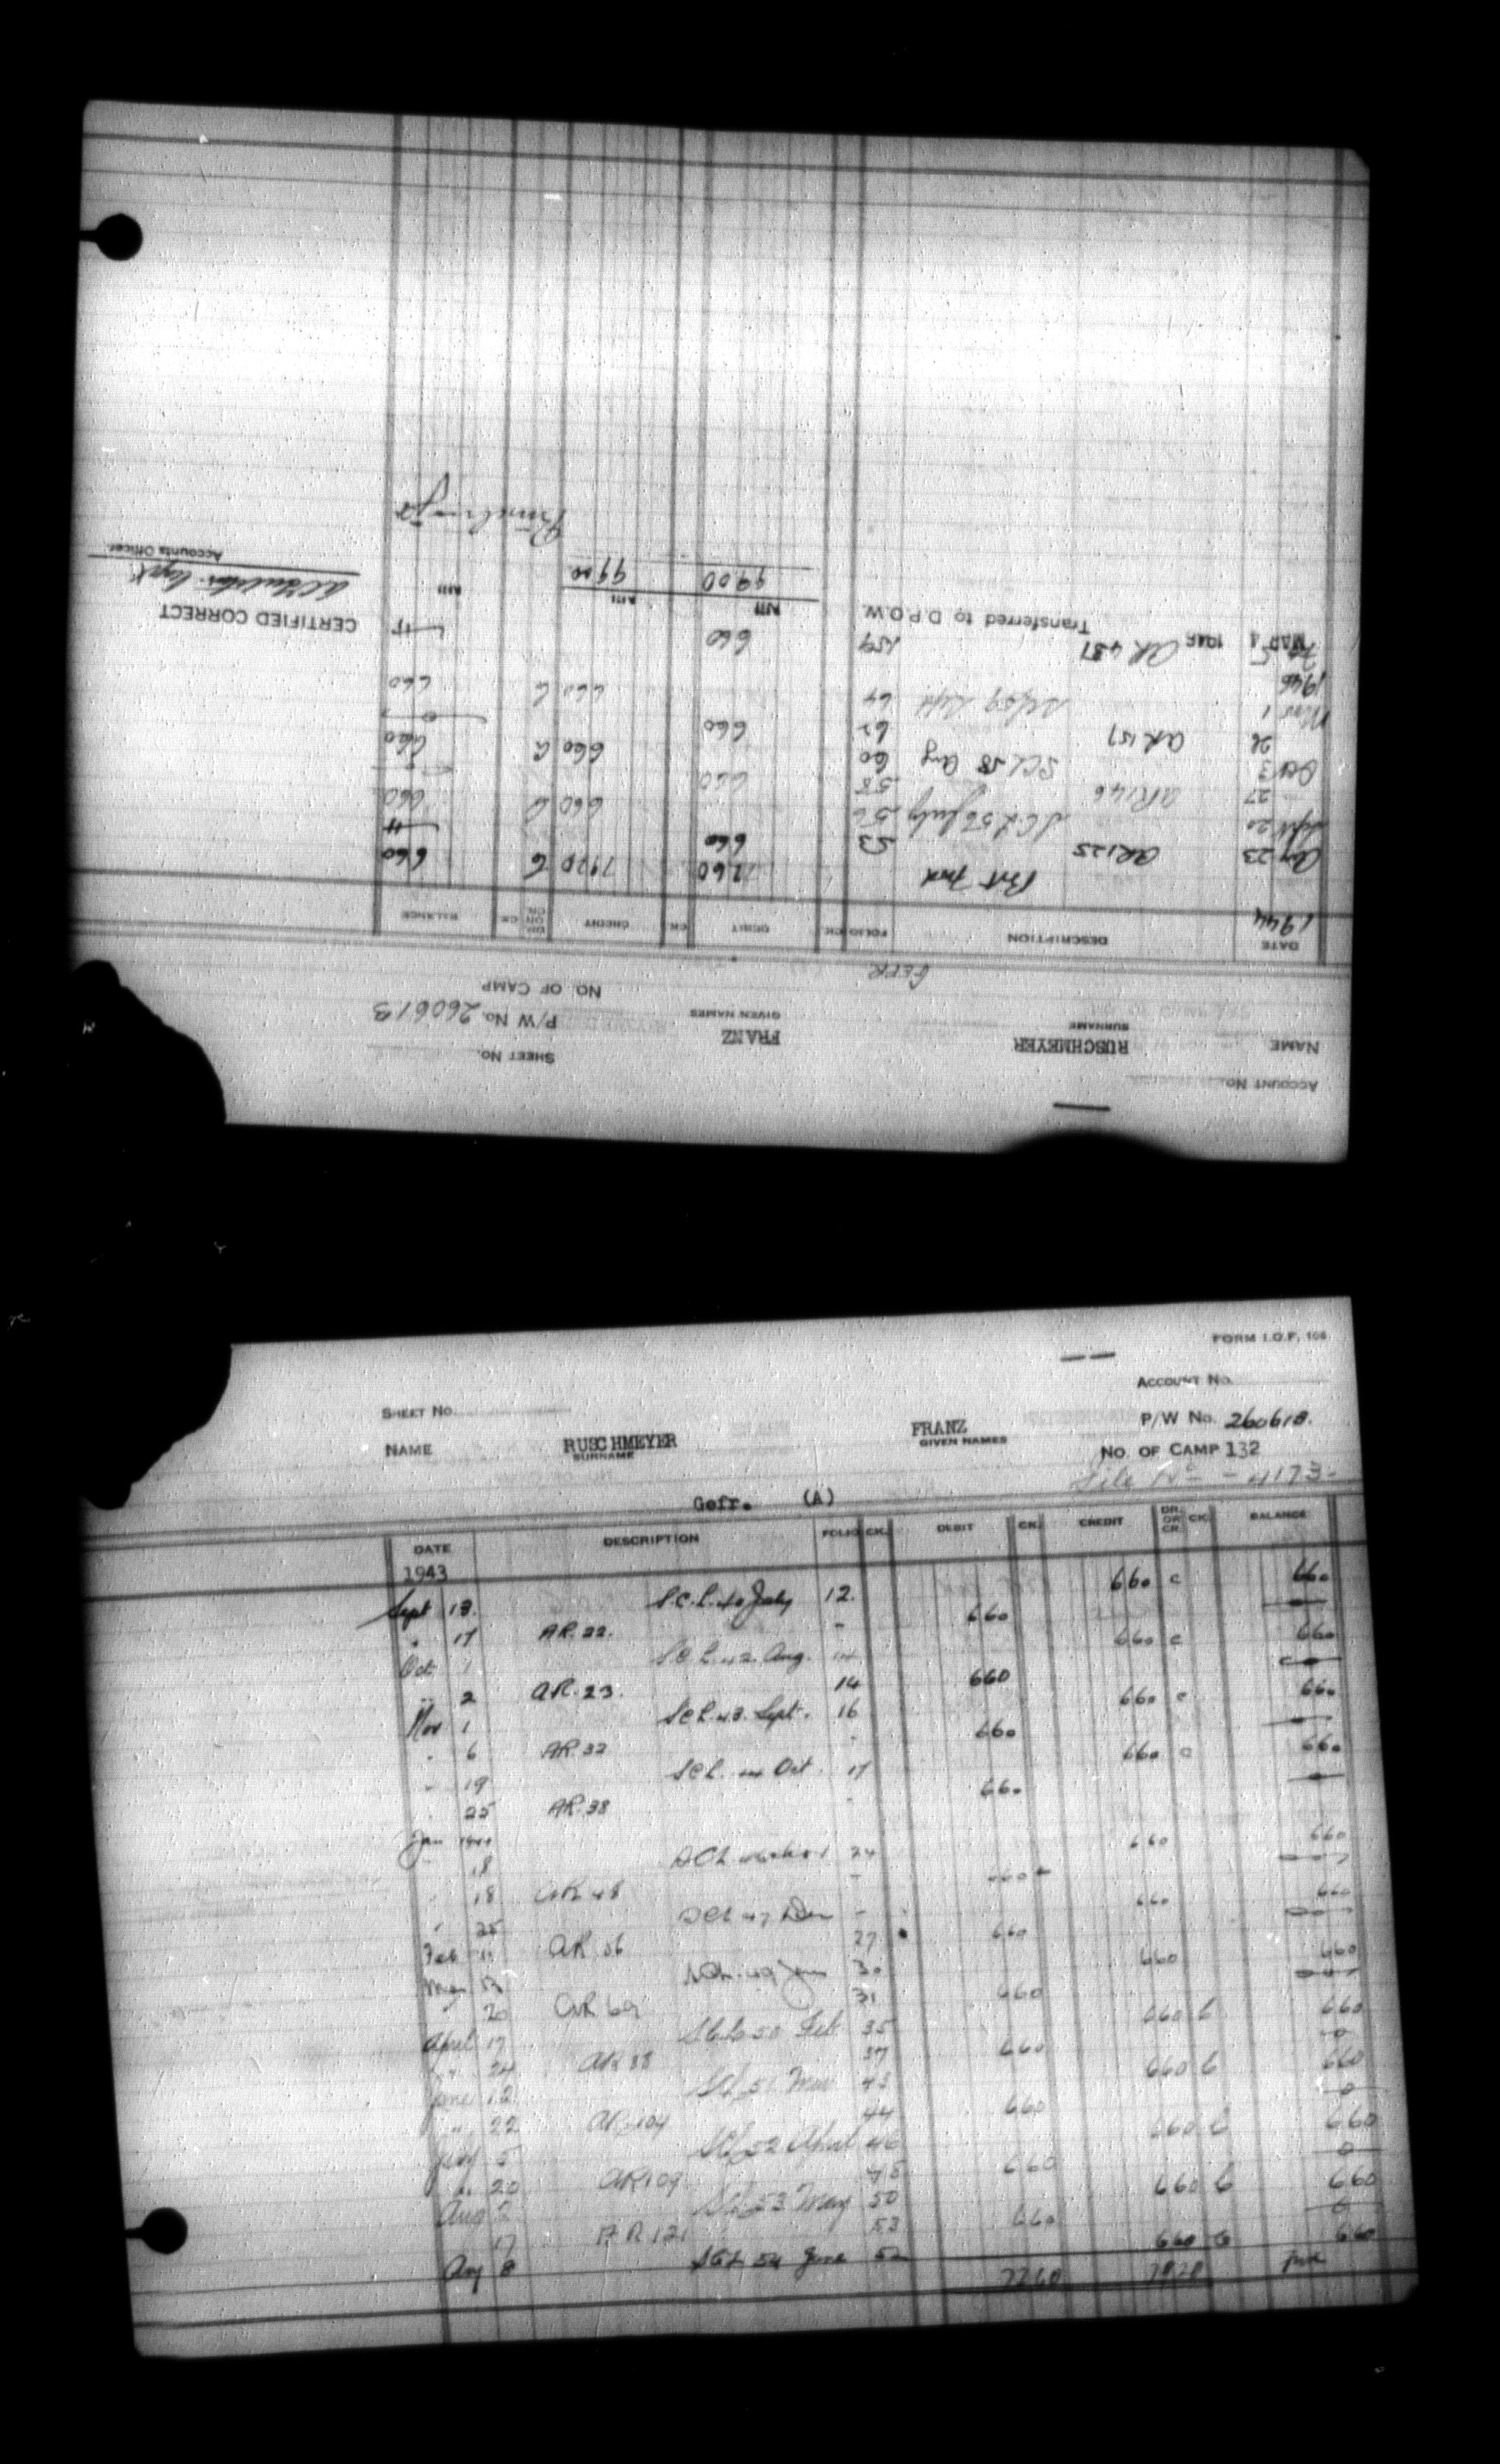 FORM I.O.F. 106
ACCOUNT No.
SHEET No. P/W No. 260613.
NAME RUSCHMEYER FRANZ
SURNAME GIVEN NAMES
NO. OF CAMP 132
File No - 4173-
Gefr. (A)
DATE DESCRIPTION FOLIO CK. DEBIT CK. CREDIT DR. OR CR. CK. BALANCE
1943
Sept 13. S.C.L. 40 July 12. 660 c 660
" 17 AR. 22. - 660
Oct 1 S.C.L. 42 Aug. 14 660 c 660
" 2 AR. 23. 14 660
Nov 1 SCL. 43. Sept. 16 660 c 660
" 6 AR 32 - 660
" 19 SCL. 44 Oct. 17 660 c 660
" 25 AR. 38 - 660
Jan 1944
18 24 660 660
" 18 AR 48 - 660
" 25 SCL 47 Dec - 660 660
Feb 11 AR 56 27 660
Mar 13 Jan 30 660 660
20 AR 69 31 660
April 17 SCL 50 Feb 35 660 C 660
" 24 AR 88 37 660 0
June 12 SCL 51 Mar 43 660 C 660
" 22 AR 104 44 660 0
July 5 SCL 52 April 46 660 C 660
" 20 AR 109 48 660 0
Aug 2 SCL 53 May 50 660 C 660
17 AR 121 53 660 0
Aug 8 SCL 54 June 52 660 C 660
7260 7920
ACCOUNT No. SHEET No.
NAME RUSCHMEYER FRANZ P/W No. 260613
SURNAME GIVEN NAMES NO. OF CAMP
GEFR
DATE DESCRIPTION FOLIO CK. DEBIT CK. CREDIT DR. OR CR. CK. BALANCE
1944
Brt Fwd 7260 7920 C 660
Aug 23 AR125 53 660
Sept 20 SCL 56 July 56 660 C 660
27 AR146 58 660
Oct 3 SCL 58 Aug 60 660 C 660
26 AR 157 62 660
Nov 1 SCL 59 Sept 64 660 C 660
1946
AR 431 159 660
MAR 4 1946 Transferred to D.P.O.W. NIL NIL NIL
9900 9900
CERTIFIED CORRECT
Accounts Officer